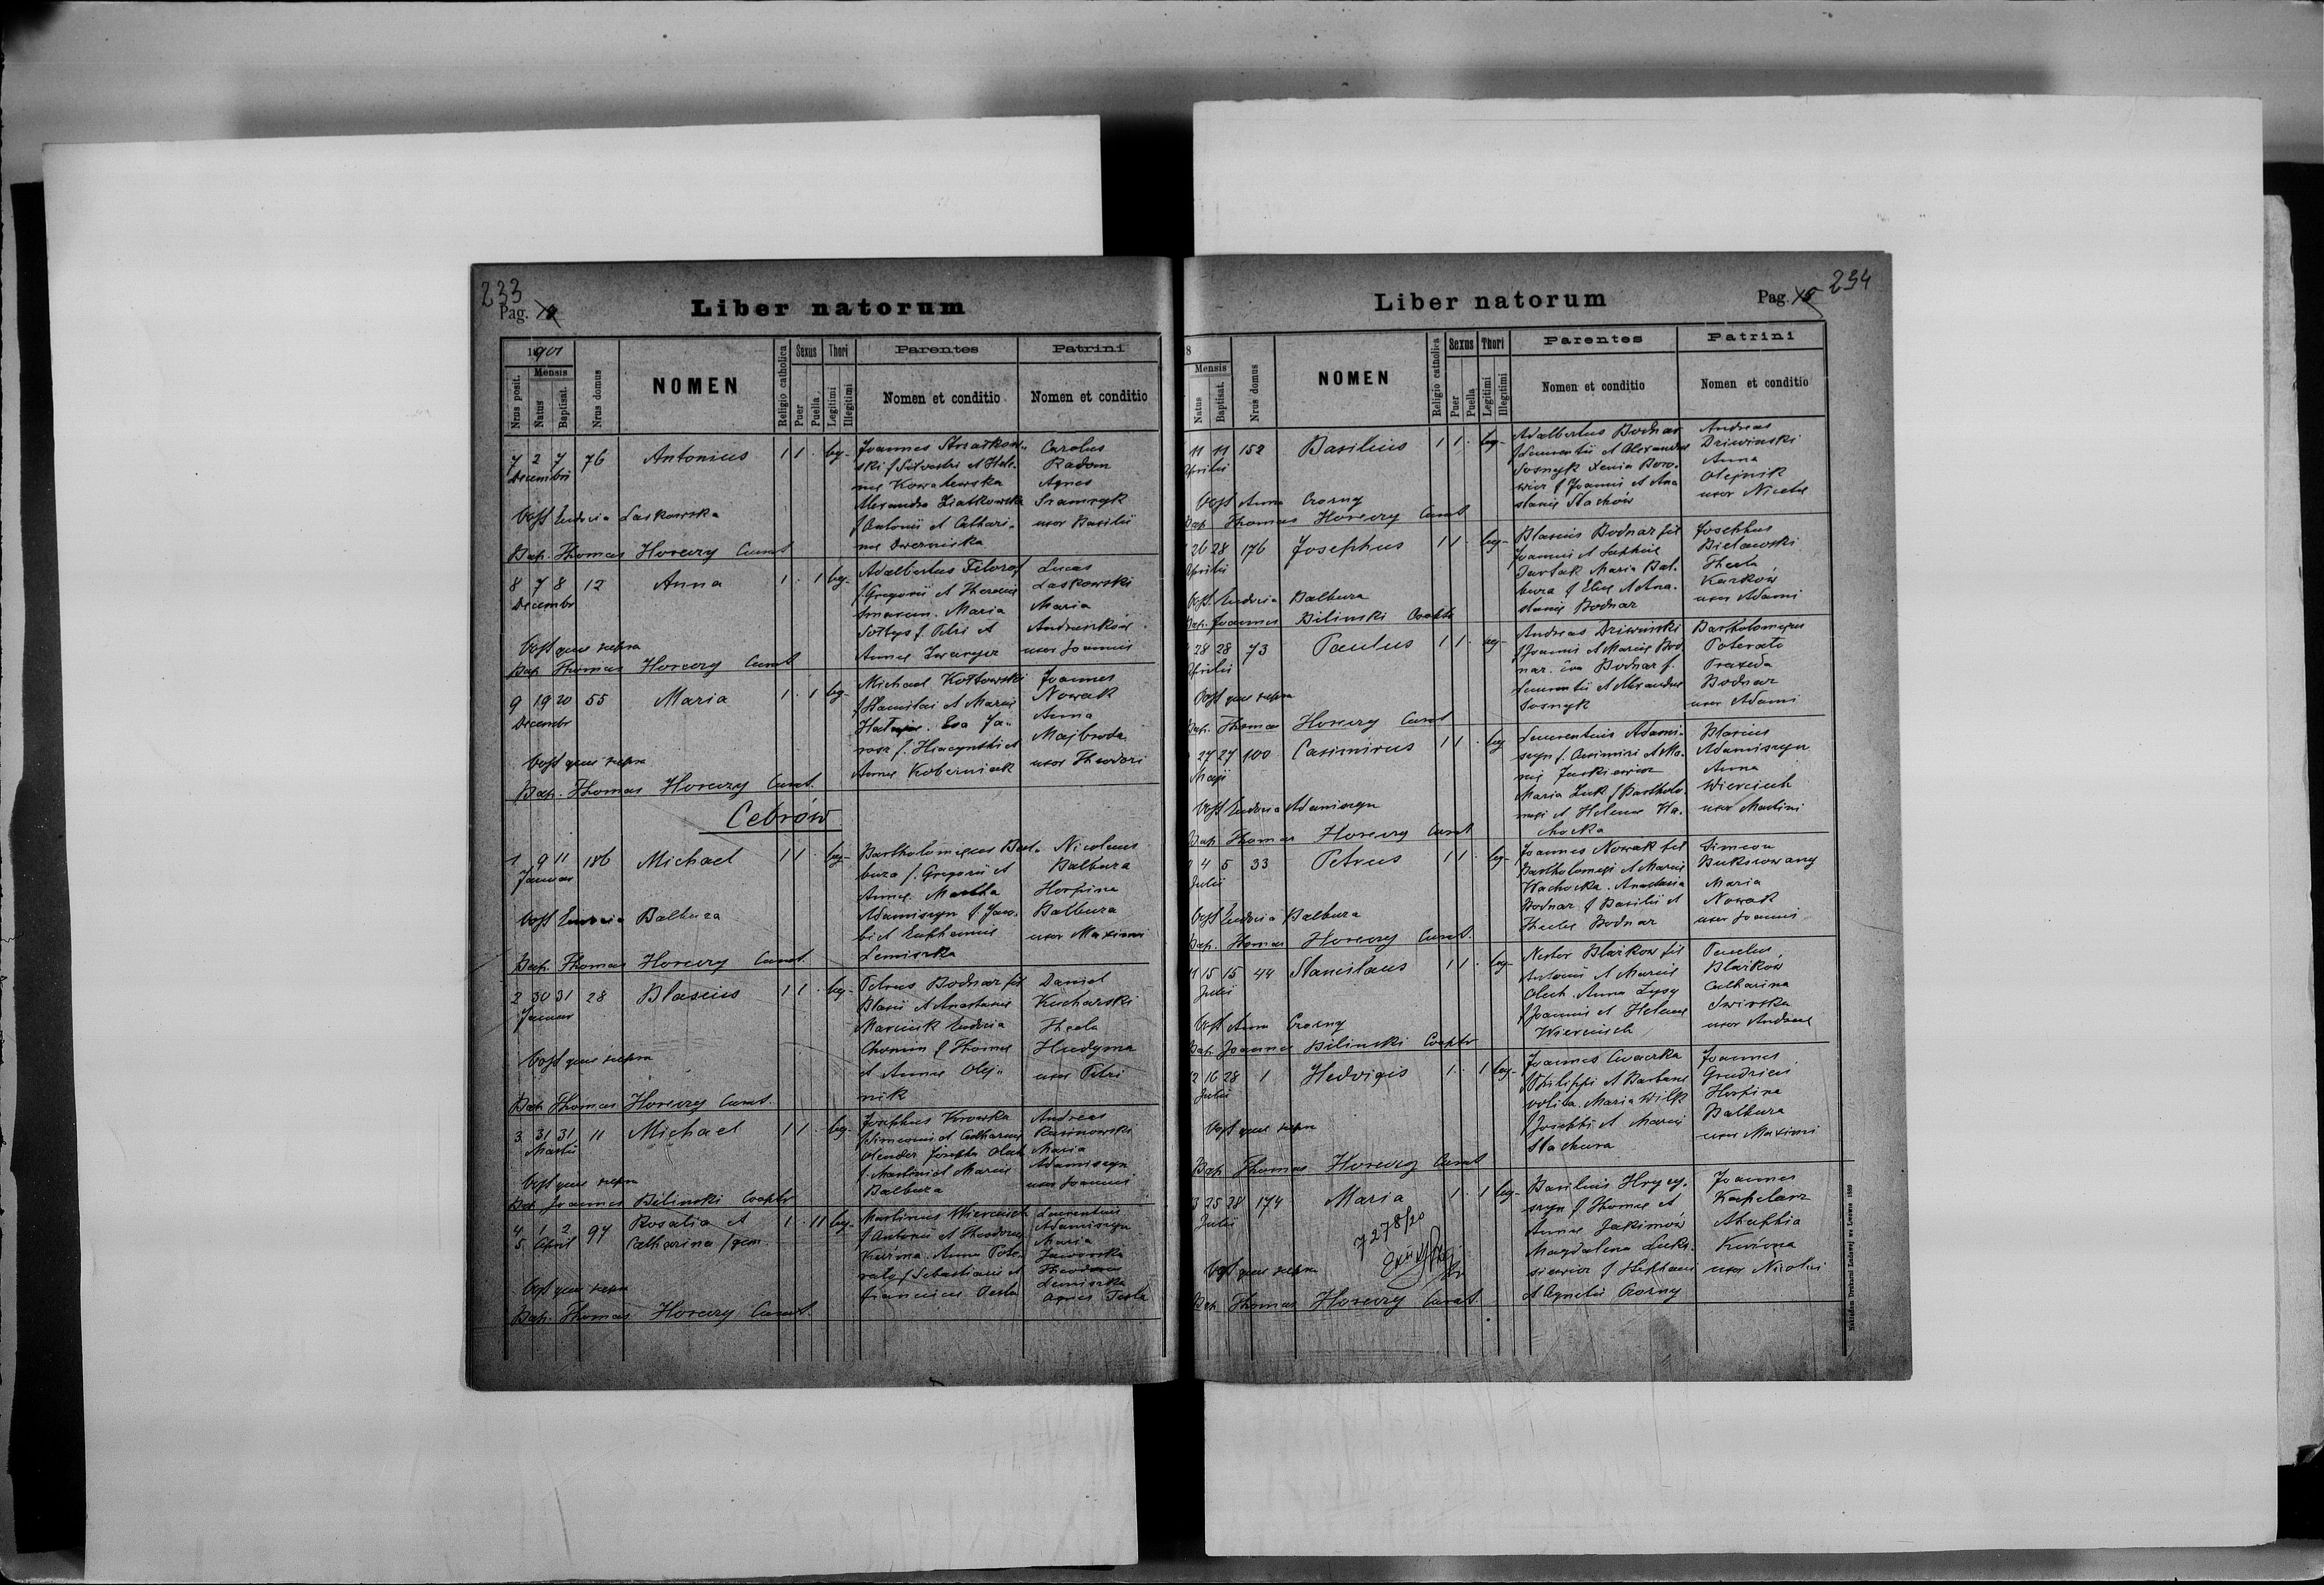 233
Pag.
Liber natorum
1901
Nrus posit.
Mensis
Natus
Baptisat.
Nrus domus
NOMEN
Religio catholica
Sexus
Puer
Puella
Thori
Legitimi
Illegitimi
Parentes
Nomen et conditio
Patrini
Nomen et conditio
7 2 7 76 Antonius 1 1 . leg-
Decembri
Joannes
ski f Silvestri et Hele-
nae Kowalewska
Alexandra Ziatkowska
f Antonii et Cathari-
nae Dwernicka
Carolus
Radom
Agnes
Szamryk
uxor Basilii
Obst Eudocia Laskowska
Bap. Thomas Horeczy Curat
8 7 8 12 Anna 1 . 1 leg-
Decembr
Adalbertus
f Gregorii et Theresiae
Maria
Sołtys f. Petri et
Annae Zwarycz
Lucas
Laskowski
Maria
Andruszkow
uxor Joannis
Obst quae supra
Bap Thomas Horeczy Curat
9 19 20 55 Maria 1 . 1 leg-
Decembr
Michael Kotłowski
f Stanislai et Mariae
Eva Ja-
rosz f. Hiacynthi et
Annae Koberniak
Joannes
Nowak
Anna
Majbroda
uxor Theodori
Obst quae supra
Bap. Thomas Horeczy Curat.
Cebrów
1 9 11 186 Michael 1 1 . leg-
Januar
Bartholomaeus Bal-
buza f. Gregorii et
Annae. Martha
Adamiszyn f. Jaco-
bi et Euphemiae
Lemiszka
Nicolaus
Balbuza
Horpina
Balbuza
uxor Maximi
Obst Eudocia Balbuza
Bap. Thomas Horeczy Curat.
2 30 31 28 Blasius 1 1 . leg-
Januar
Petrus Bodnar fil
Blasii et Anastasiae
Marciuk Eudocia
Chomin f Thomae
et Annae Olej-
nik
Daniel
Kucharski
Thecla
Hudyma
uxor Petri
Obst quae supra
Bap Thomas Horeczy Curat.
3 31 31 11 Michael 1 1 . leg-
Martii
Josephus Krowka
f Simeonis et Catharinae
Olender Josepha Olech
f. Martini et Mariae
Balbuza
Andreas
Maria
Adamiszyn
uxor Joannis
Obst quae supra
Bap Joannes Bilinski Cooptr
4 1 2 97 Rosalia et 1 . 11 leg-
5 April Catharina / gem.
Martinus Wierciuch
f Antonii et Theodorae
Anna Pote-
raly f Sebastiani et
Franciscae Tesla
Laurentius
Adamiszyn
Maria
Jaworska
Theodorus
Lemiszka
Agnes Tesla
Obst quae supra
Bap. Thomas Horeczy Curat.
234
Liber natorum
Pag.
8
Mensis
Natus
Baptisat.
Nrus domus
NOMEN
Religio catholica
Sexus
Puer
Puella
Thori
Legitimi
Illegitimi
Parentes
Nomen et conditio
Patrini
Nomen et conditio
11 11 152 Basilius 1 1 . leg-
Aprilis
Adalbertus Bodnar
f Laurentii et Alexandrae
Sosnyk Xenia Boro-
wicz f Joannis et Ana
stasiae Stachów
Andreas
Driwinski
Anna
Olejnik
uxor Nicolai
Obst Anna Czorny
Bap Thomas Horeczy Curat
26 28 176 Josephus 1 1 . leg-
Aprilis
Blasius Bodnar fil
Joannis et Sophiae
Maria Bal-
buza f Eliae et Ana-
stasiae Bodnar
Josephus
Bielawski
Thecla
Karków
uxor Adami
Obst. Eudocia Balbuza
Bap. Joannes Bilinski Cooptr
28 28 73 Paulus 1 1 . leg-
Aprilis
Andreas Driwinski
f Joannis et Mariae Bod
nar. Eva Bodnar f.
Laurentii et Alexandrae
Sosnyk
Bartholomaeus
Poterało
Praxeda
Bodnar
uxor Adami
Obst quae supra
Bap. Thomas Horeczy Curat
27 27 100 Casimirus 1 1 . leg
Maji
Laurentius Adami-
szyn f. Casimiri et Ma-
riae Jackiewicz
Maria Zuk f Bartholo-
maei et Helenae Wa-
chocka
Blasius
Adamiszyn
Anna
Wierciuch
uxor Martini
Obst Eudocia Adamiszyn
Bap Thomas Horeczy Curat
4 5 33 Petrus 1 1 . leg-
Julii
Joannes Nowak fil
Bartholomaei et Mariae
Wachocka. Anastasia
Bodnar f Basilii et
Theclae Bodnar
Simeon
Buksowany
Maria
Nowak
uxor Joannis
Obst Eudocia Balbuza
Bap. Thomas Horeczy Curat.
11 15 15 44 Stanislaus 1 1 . leg-
Julii
Nestor Blazkow fil
Antonii et Mariae
Olech. Anna Lysy
f Joannis et Helenae
Wierciuch
Paulus
Blazków
Catharina
Swirska
uxor Andreae
Obst Anna Czorny
Bap Joannes Bilinski Cooptr
12 16 28 1 Hedvigis 1 . 1 leg-
Julii
Joannes Cwaczka
f Philippi et Barbarae
Maria Wilk
f Josephi et Mariae
Stachura
Joannes
Horpina
Balbuza
uxor Maximi
Obst quae supra
Bap Thomas Horeczy Curat
13 25 28 174 Maria 1 . 1 leg-
Julii
7278/20
Basilius Hrycy-
szyn f Thomae et
Annae Jakimów
Magdalena Luka-
siewicz f Stephani
et Agnetis Czorny
Joannes
Kapelarz
Ahaphia
Kuśnna
uxor Nicolai
Obst quae supra
Bap Thomas Horeczy Curat.
Nakładem Drukarni Ludowej we Lwowie 1889